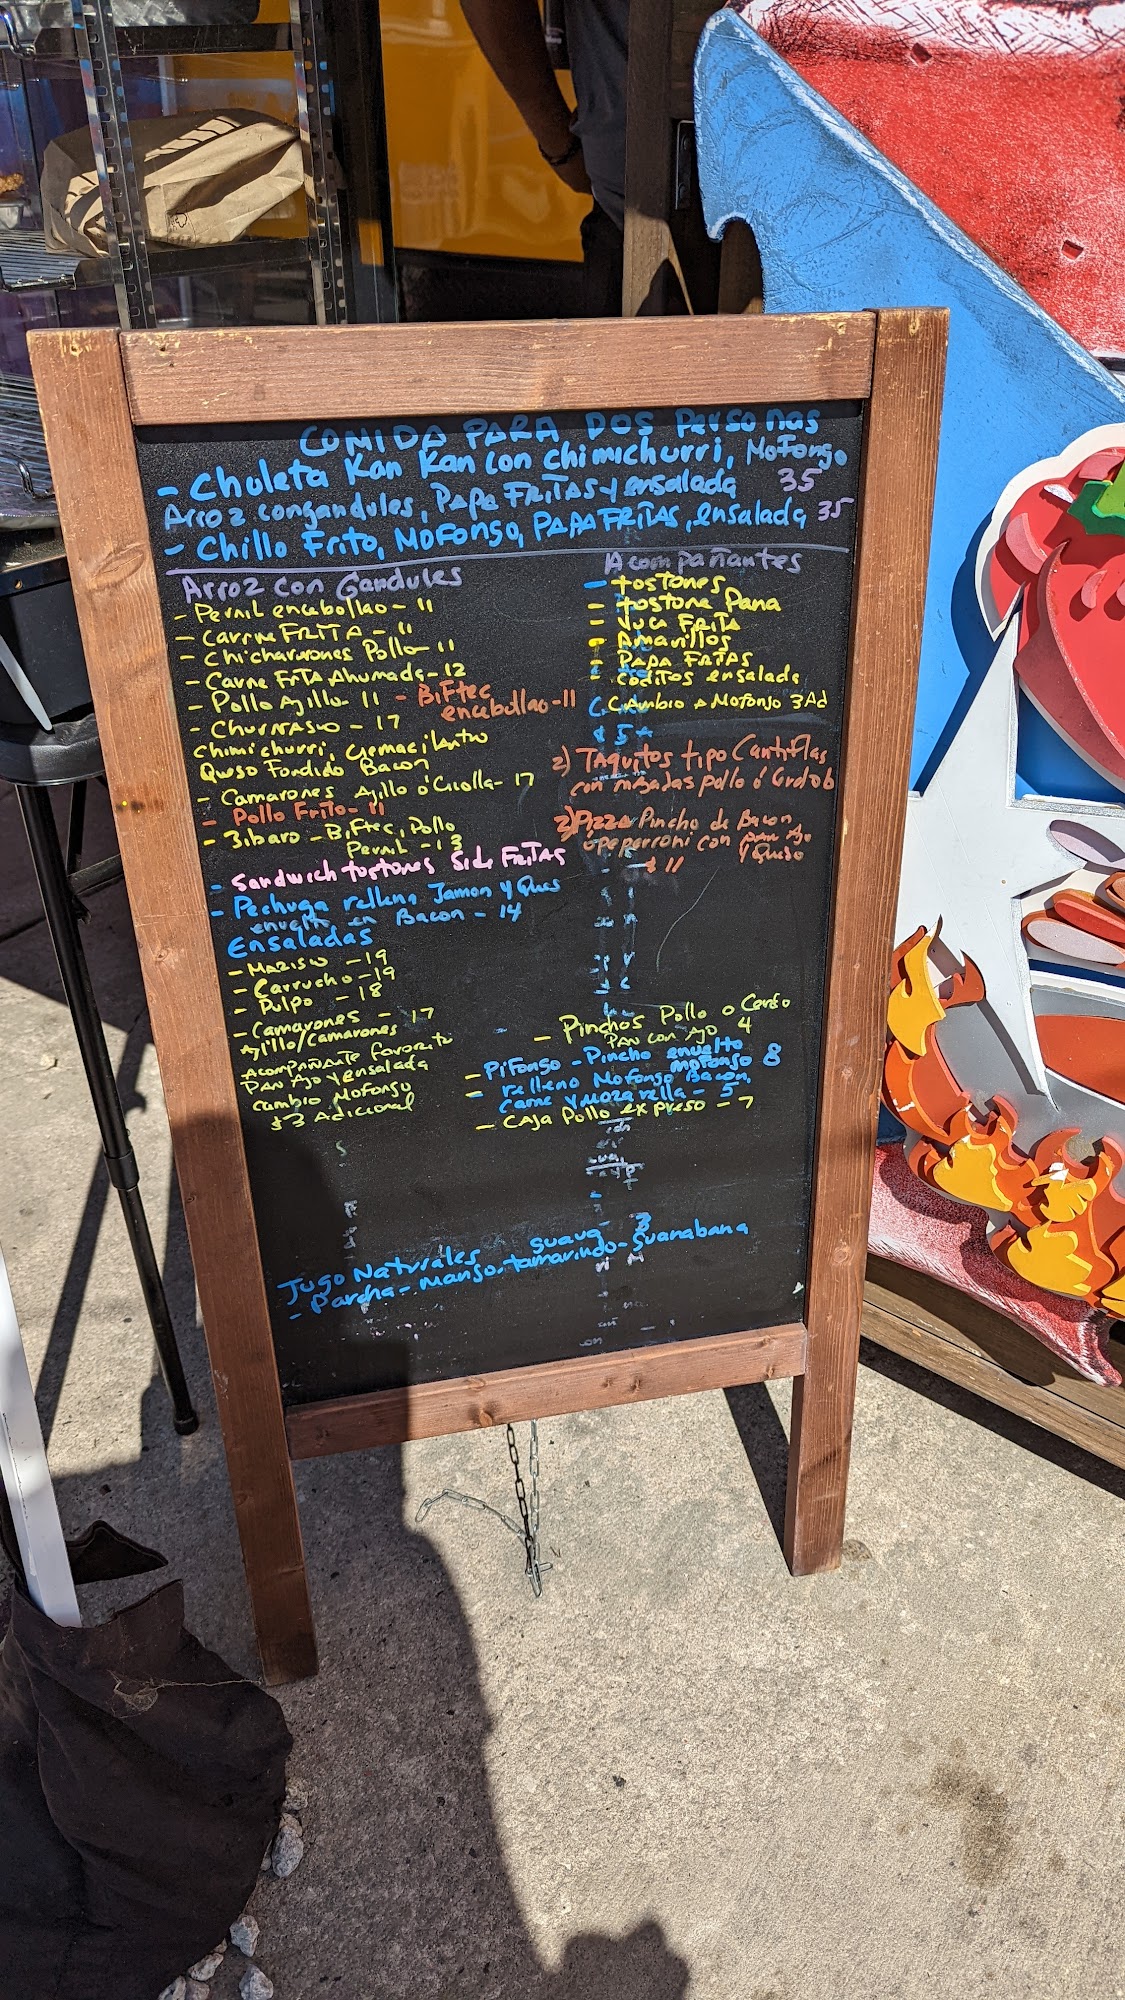 COMIDA PARA DOS Personas
- Chuleta Kan Kan con chimichurri, Mofongo
Arroz congandules, PAPA FRITAS y ensalada 35
- Chillo Frito, Mofongo, PAPA FRITAS, ensalada 35
Arroz con Gandules
- Pernil encebollao - 11
- Carne FRITA - 11
- Chicharrones Pollo - 11
- Carne FRITA Ahumada - 12
- Pollo Ajillo - 11
- BiFtec
encebollao - 11
- Churrasco - 17
chimichurri, Cremacilantro
Queso Fondido Bacon
- Camarones Ajillo ó Criolla - 17
- Pollo Frito - 11
- Jibaro - BiFtec, Pollo
Pernil - 13
- Sandwich tostones Side FRITAS
- Pechuga rellena Jamon y Ques
envuelta en Bacon - 14
Ensaladas
- Marisco - 19
- Carrucho - 19
- Pulpo - 18
- Camarones - 17
Ajillo/Camarones
Acompañante favorito
Pan Ajo y ensalada
cambio Mofongo
$3 Adicional
Acompañantes
- tostones
- tostone Pana
- Yuca Frita
- Amarillos
- PAPA FRITAS
- coditos ensalada
Cambio a Mofongo 3 Ad
$5
2) Taquitos tipo Cantiflas
con mejadas pollo ó Cerdo
2) Pizza Pincho de Bacon
o peperroni con pan Ajo
y Queso
$11
- Pinchos Pollo o Cerdo
Pan con Ajo 4
- PiFongo - Pincho envuelto
mofongo 8
- relleno Mofongo Bacon,
Carne y mozarella - 5
- CAJA Pollo expreso - 7
Jugo Naturales guava 3
- Parcha - Mango, tamarindo - Guanabana